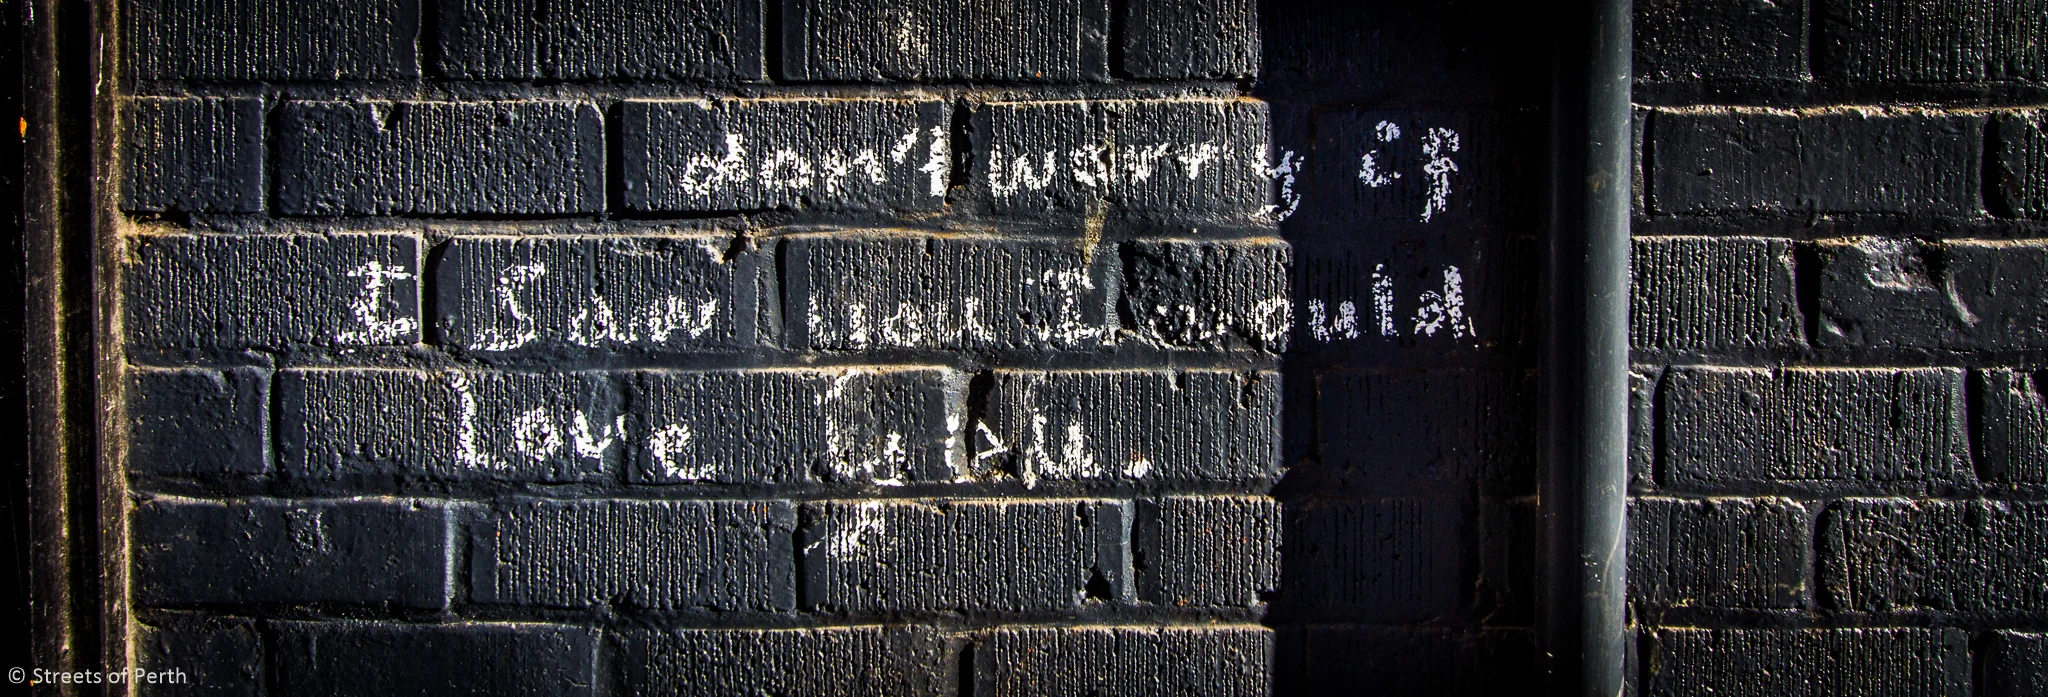 don't worry if
I Saw you I would
love you.
© Streets of Perth